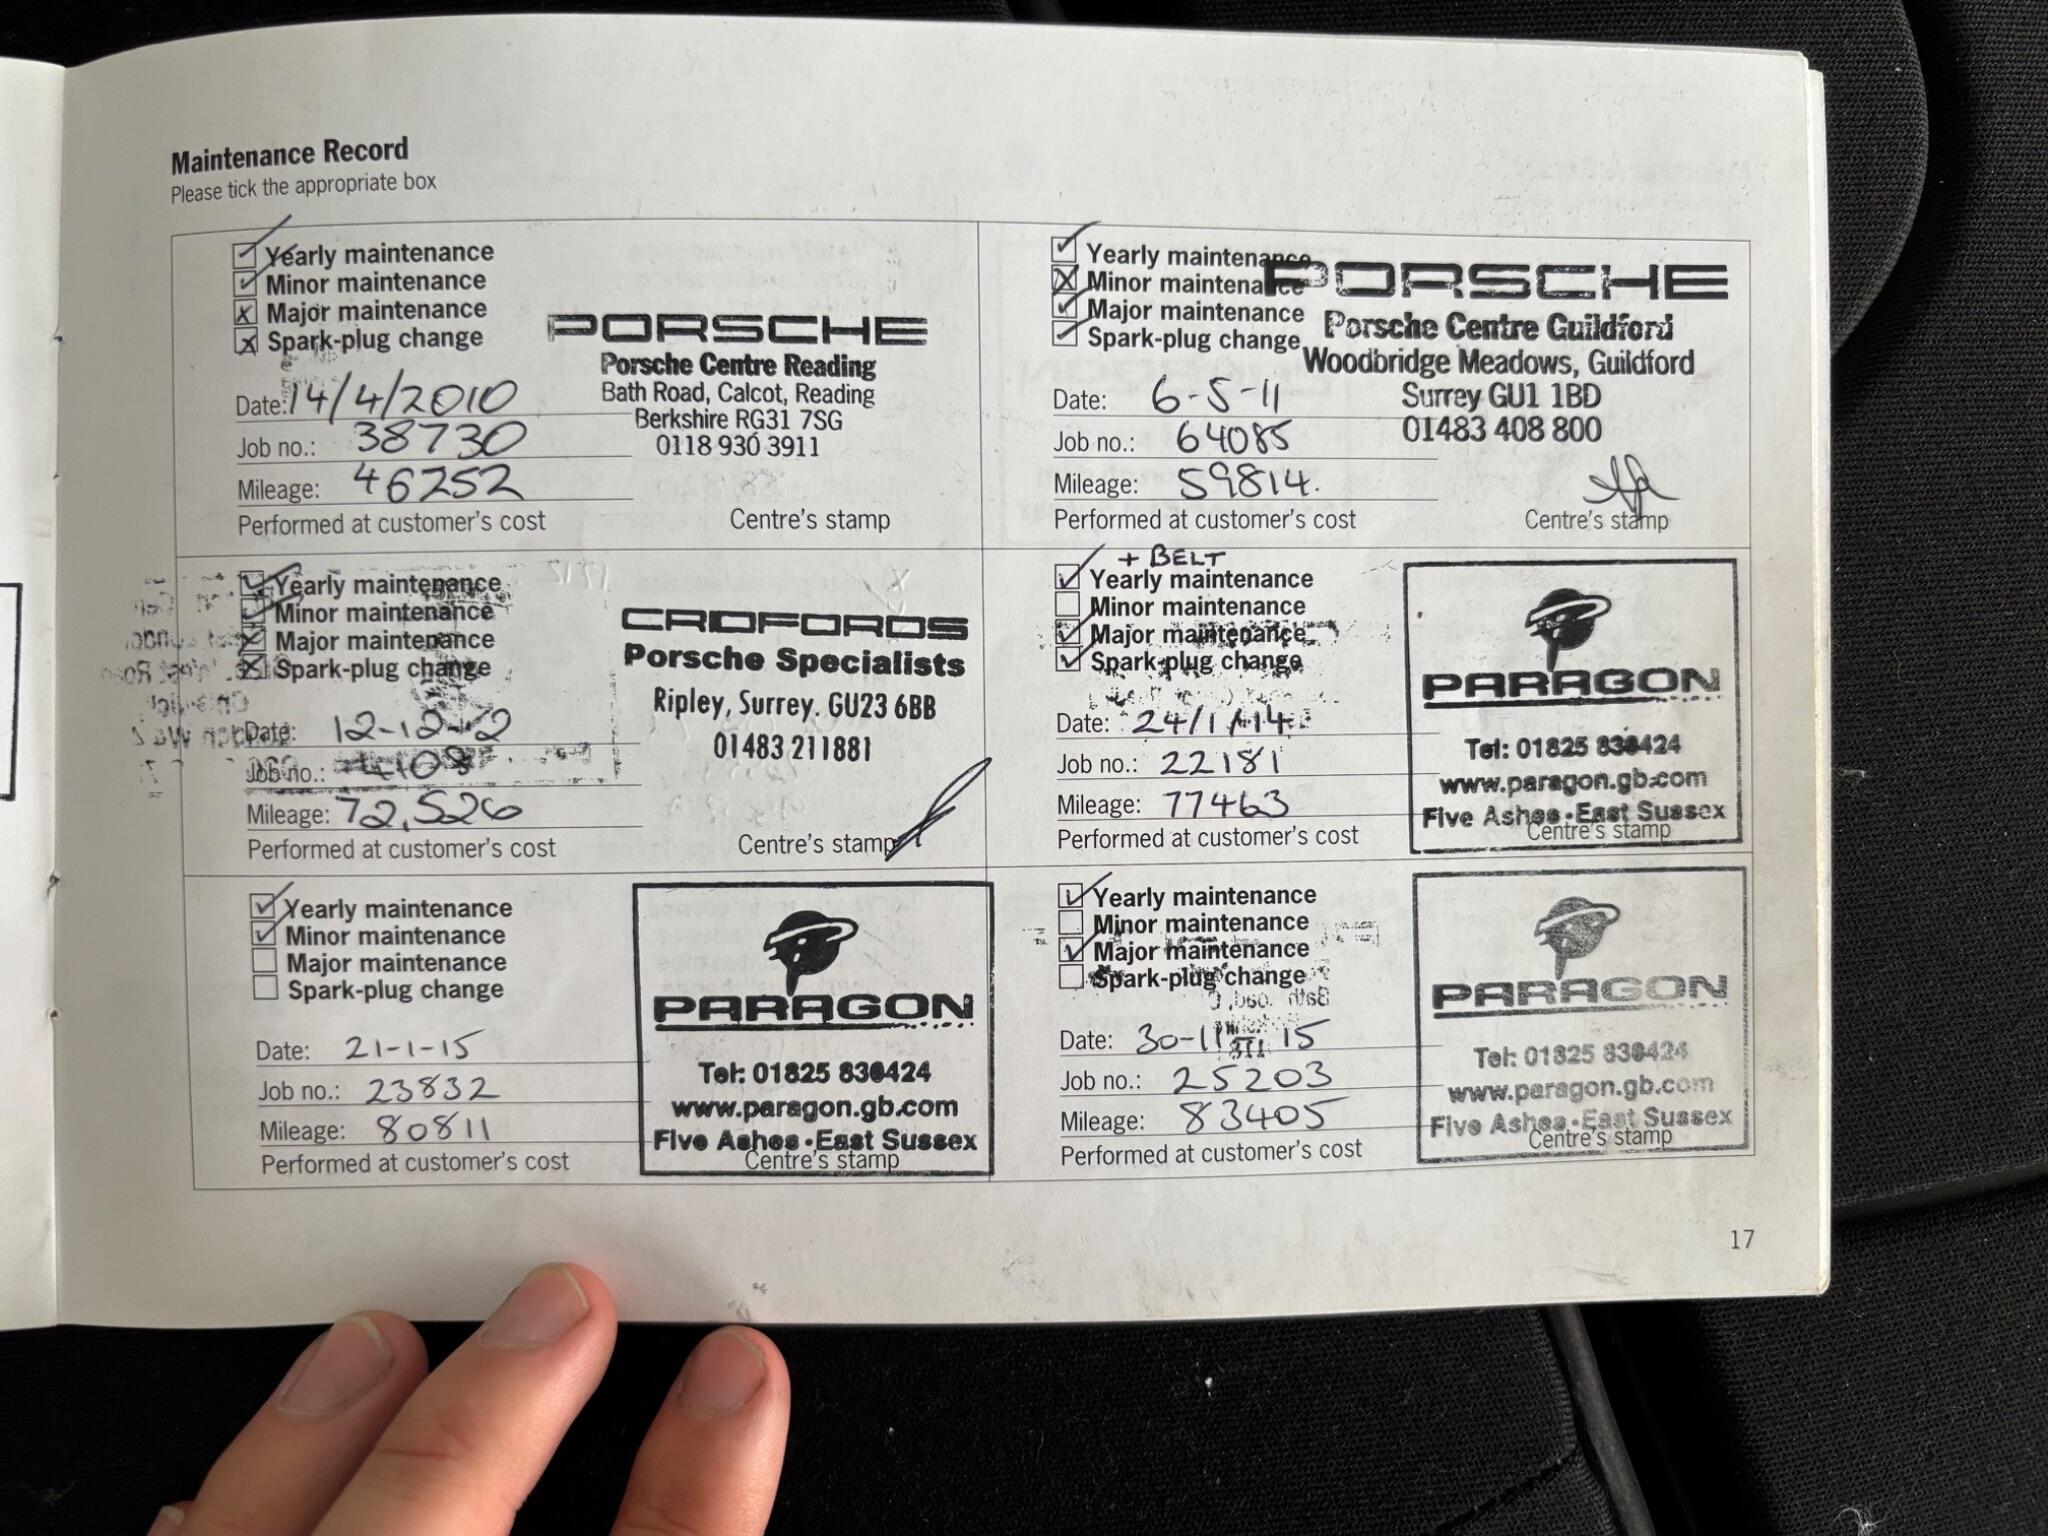 Maintenance Record
Please tick the appropriate box
Yearly maintenance
Minor maintenance
Major maintenance
Spark-plug change
Date: 14/4/2010
Job no.: 38730
Mileage: 46252
Performed at customer's cost
PORSCHE
Porsche Centre Reading
Bath Road, Calcot, Reading
Berkshire RG31 7SG
0118 930 3911
Centre's stamp
Yearly maintenance
Minor maintenance
Major maintenance
Spark-plug change
Date: 6-5-11
Job no.: 64085
Mileage: 59814.
Performed at customer's cost
PORSCHE
Porsche Centre Guildford
Woodbridge Meadows, Guildford
Surrey GU1 1BD
01483 408 800
Centre's stamp
Yearly maintenance
Minor maintenance
Major maintenance
Spark-plug change
Date: 12-12-12
Job no.: 4108
Mileage: 72,526
Performed at customer's cost
CROFORDS
Porsche Specialists
Ripley, Surrey. GU23 6BB
01483 211881
Centre's stamp
+ BELT
Yearly maintenance
Minor maintenance
Major maintenance
Spark-plug change
Date: 24/1/14
Job no.: 22181
Mileage: 77463
Performed at customer's cost
PARAGON
Tel: 01825 830424
www.paragon.gb.com
Five Ashes • East Sussex
Centre's stamp
Yearly maintenance
Minor maintenance
Major maintenance
Spark-plug change
Date: 21-1-15
Job no.: 23832
Mileage: 80811
Performed at customer's cost
PARAGON
Tel: 01825 830424
www.paragon.gb.com
Five Ashes • East Sussex
Centre's stamp
Yearly maintenance
Minor maintenance
Major maintenance
Spark-plug change
Date: 30-11-15
Job no.: 25203
Mileage: 83405
Performed at customer's cost
PARAGON
Tel: 01825 830424
www.paragon.gb.com
Five Ashes • East Sussex
Centre's stamp
17